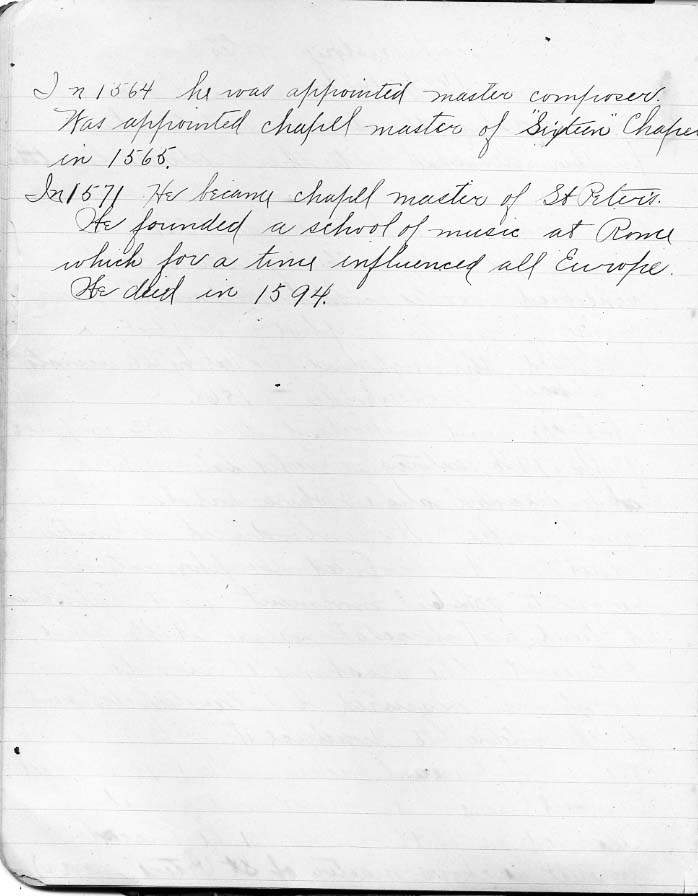 In 1564 he was appointed master composer.
Was appointed chapell master of "Sixteen" Chape
in 1565.
In 1571 He became chapell master of St Peter's.
He founded a school of music at Rome
which for a time influenced all Europe.
He died in 1594.